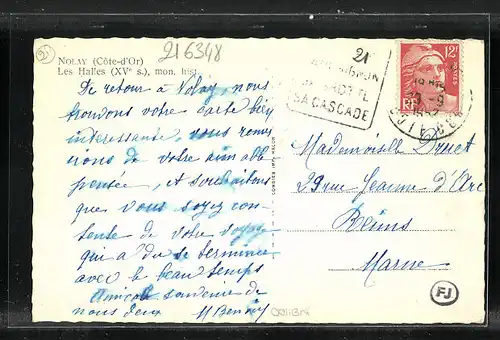 21
216348
NOLAY (Côte-d'Or)
Les Halles (XVe s.), mon. hist.
De retour à Nolay, nous
trouvons votre carte bien
interessante, vous remer
cions de votre aimable
pensée, et souhaitons
que vous soyez con
tente de votre voyage
qui a du se terminer
avec le beau temps
Amical souvenir de
nous deux
21
SA CASCADE
12F
RF
POSTES
Mademoiselle Druet
29 rue Jeanne d'Arc
Reims
Marne
FJ